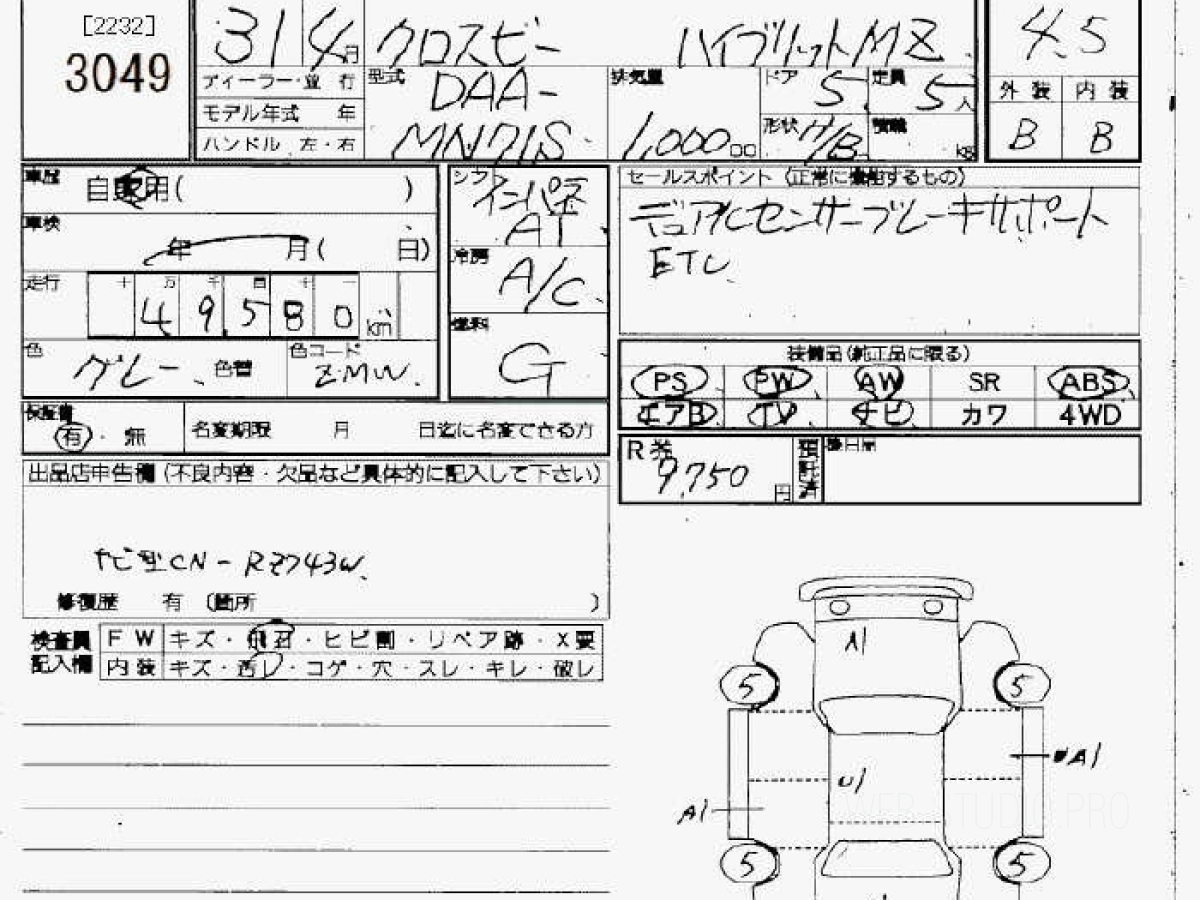 [2232]
3049
31 4月
クロスビー ハイブリットMZ
4.5
ディーラー・並 行
モデル年式 年
ハンドル 左・右
型式 DAA-
MN71S
排気量
1,000 cc
ドア 5
定員 5人
形状 H/B
積載 kg
外 装 内 装
B B
車歴
自家用( )
車検
年 月( 日)
走行 十 万 千 百 十 一
4 9 5 8 0 km
色 グレー 色替
色コード ZMW
シフト インパネ
AT
冷房
A/C
燃料
G
セールスポイント (正常に機能するもの)
デュアルセンサーブレーキサポート
ETC
装備品(純正品に限る)
PS PW AW SR ABS
エアB TV ナビ カワ 4WD
保証書
有 ・ 無
名変期限 月 日迄に名変できる方
R券
9,750 円
預託済
後日品
出品店申告欄(不良内容・欠品など具体的に記入して下さい)
ナビ型CN-RZ743W
修復歴 有 〔箇所 〕
検査員
記入欄
F W キズ・飛石・ヒビ割・リペア跡・X要
内 装 キズ・汚レ・コゲ・穴・スレ・キレ・破レ
A1
5 5
A1
U1
A1
5 5
WEB STUDIO PRO